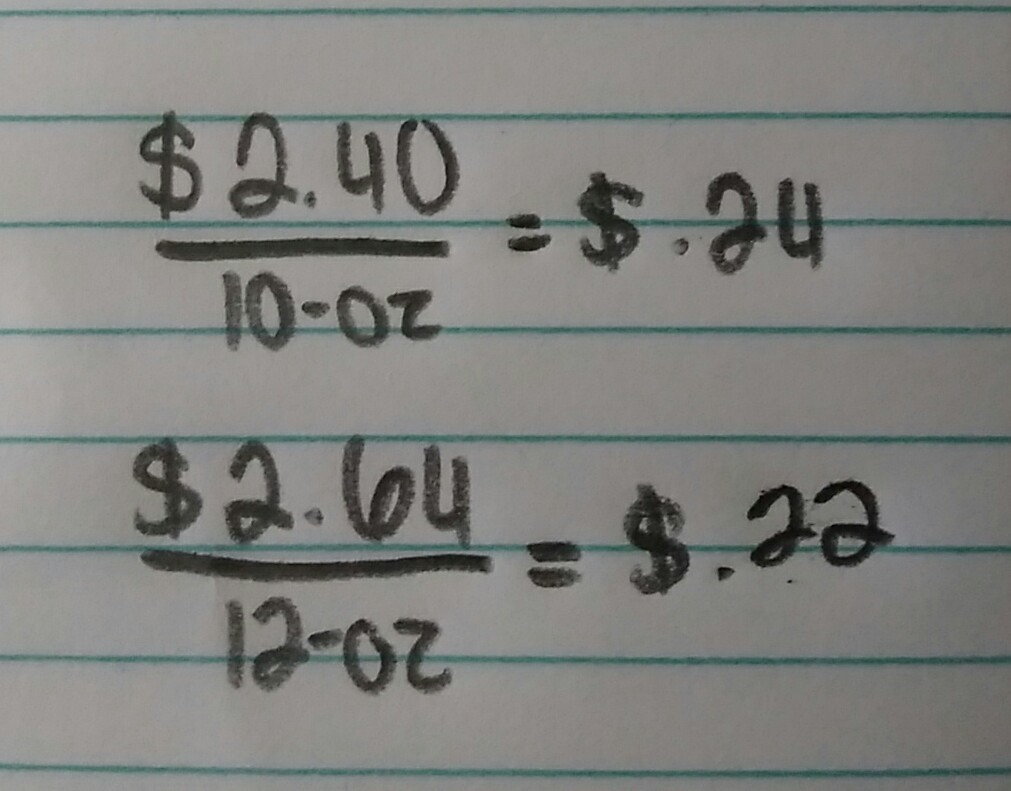 $2.40
10-oz = $.24
$2.64
12-oz = $.22